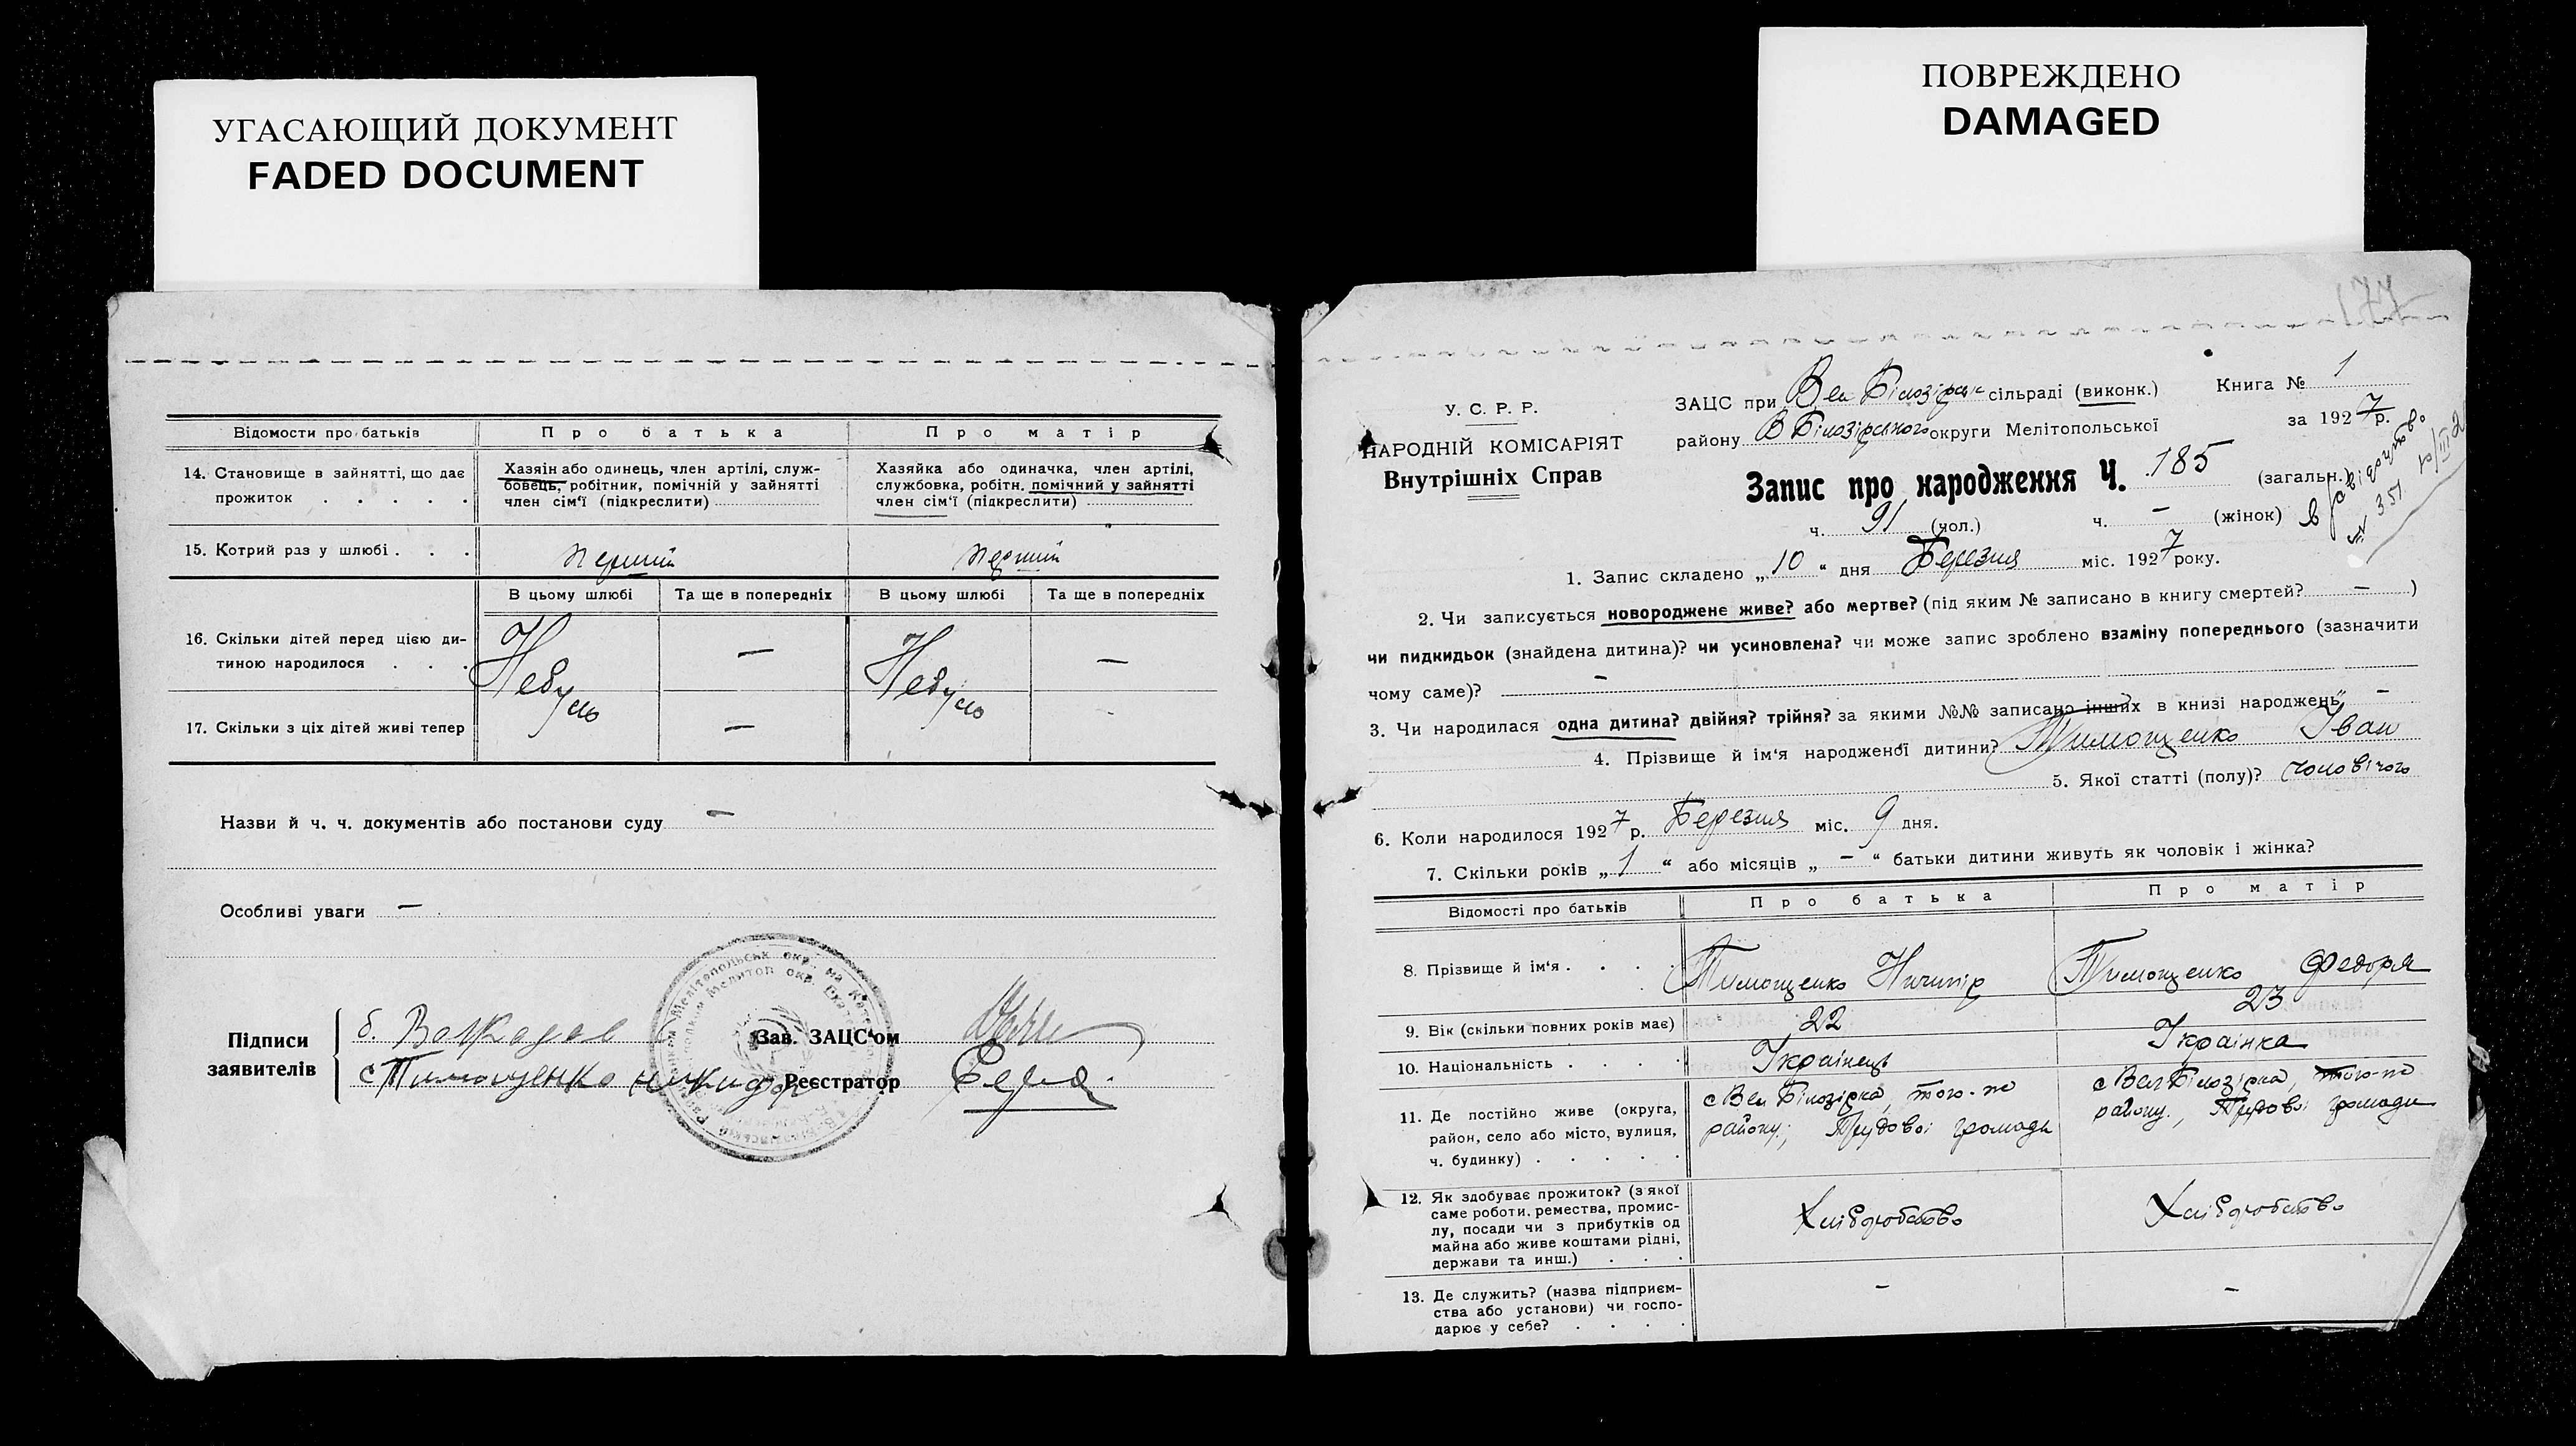 УГАСАЮЩИЙ ДОКУМЕНТ
FADED DOCUMENT
ПОВРЕЖДЕНО
DAMAGED
Відомости про батьків
Про батька
Про матір
14. Становище в зайнятті, що дає
прожиток . . . . .
Хазяін або одинець, член артілі, служ-
бовець, робітник, помічній у зайнятті
член сім'ї (підкреслити)
Хазяйка або одиначка, член артілі,
службовка, робітн. помічний у зайнятті
член сім'ї (підкреслити)
15. Котрий раз у шлюбі . . .
перший
перший
В цьому шлюбі
Та ще в попередніх
В цьому шлюбі
Та ще в попередніх
16. Скільки дітей перед цією ди-
тиною народилося . . .
Небуло
—
Небуло
—
17. Скільки з ціх дітей живі тепер
—
Назви й ч. ч. документів або постанови суду —
Особливі уваги —
Підписи
заявителів
б.
с Тимощенко
Зав. ЗАЦС'ом
Реєстратор
У. С. Р. Р.
НАРОДНІЙ КОМІСАРІЯТ
Внутрішніх Справ
ЗАЦС при Вел Білозірськ сільраді (виконк.)
району В Білозірського округи Мелітопольської
Книга № 1
за 1927 р.
Запис про народження Ч. 185 (загальн.)
ч. 91 (чол.) ч. — (жінок)
1. Запис складено „10“ дня Березня міс. 1927 року.
2. Чи записується новороджене живе? або мертве? (під яким № записано в книгу смертей? — )
чи пидкидьок (знайдена дитина)? чи усиновлена? чи може запис зроблено взаміну попереднього (зазначити
чому саме)? —
3. Чи народилася одна дитина? двійня? трійня? за якими №№ записано інших в книзі народжень —
4. Прізвище й ім'я народженої дитини? Тимощенко Іван
5. Якої статті (полу)? чоловічого
6. Коли народилося 1927 р. Березня міс. 9 дня.
7. Скільки років „1“ або місяців „—“ батьки дитини живуть як чоловік і жінка?
Відомості про батьків
Про батька
Про матір
8. Прізвище й ім'я . . . .
Тимощенко Ничипір
Тимощенко Федоря
9. Вік (скільки повних років має)
22
23
10. Національність . . . .
Українець
Українка
11. Де постійно живе (округа,
район, село або місто, вулиця,
ч. будинку) . . . . .
с Вел Білозірка, того-же
району, Трудовоі громади
с Вел Білозірка, того-же
району, Трудовоі громади
12. Як здобуває прожиток? (з якої
саме роботи, ремества, промис-
лу, посади чи з прибутків од
майна або живе коштами рідні,
держави та инш.) . . .
Хліборобство
Хліборобство
13. Де служить? (назва підприєм-
ства або установи) чи госпо-
дарює у себе? . . . .
—
—